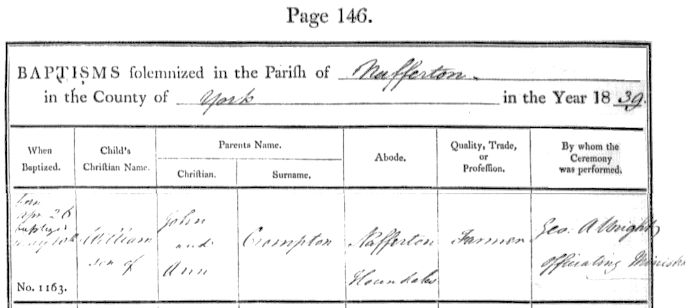 Page 146.
BAPTISMS solemnized in the Parish of Nafferton
in the County of York in the Year 1839.
When
Baptized.
Child's
Christian Name.
Parents Name.
Christian.
Surname.
Abode.
Quality, Trade,
or
Profession.
By whom the
Ceremony
was performed.
Born
Apr 26
baptized
No. 1163.
William
son of
John
and
Ann
Crompton
Nafferton
Houndales
Farmer
Geo. Allbright
Officiating Minister